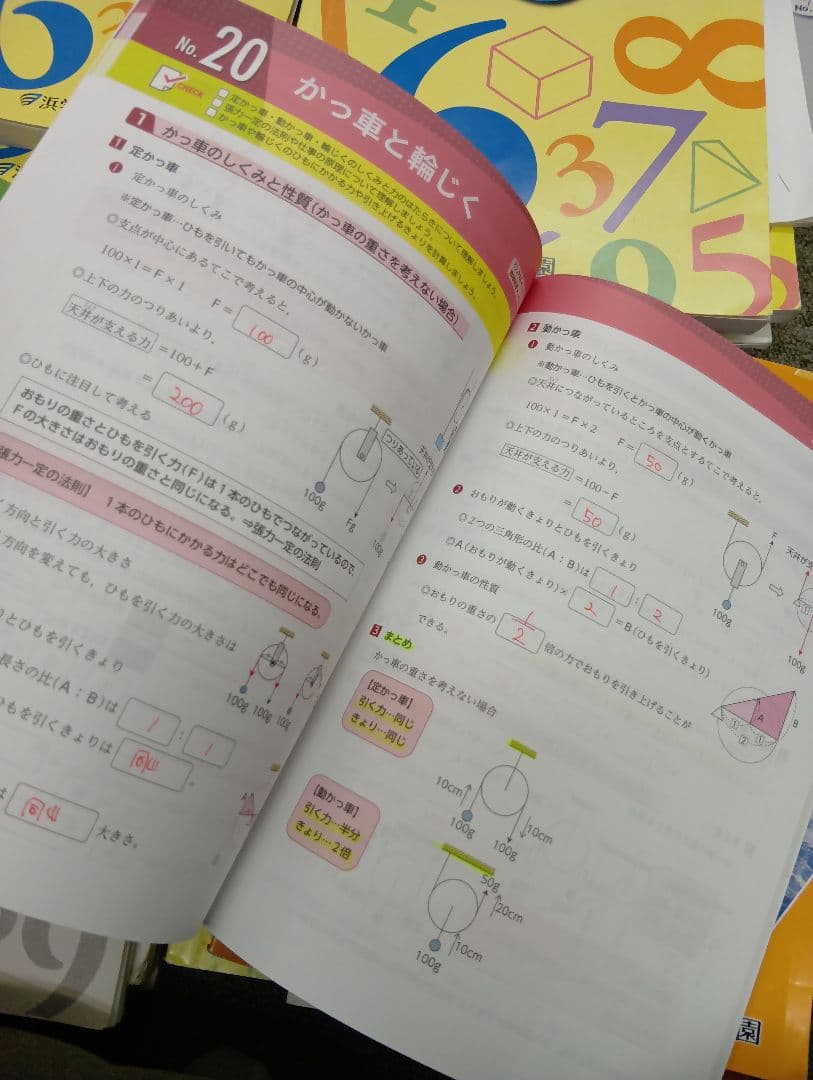 No. 20 かっ車と輪じく
CHECK
定かっ車・動かっ車・輪じくのしくみと力のはたらきについて理解しましょう。
張力一定の法則や仕事の原理について理解しましょう。
かっ車や輪じくのひもにかかる力や引き上げるきょりを計算しましょう。
1 かっ車のしくみと性質(かっ車の重さを考えない場合)
1 定かっ車
❶ 定かっ車のしくみ
※定かっ車…ひもを引いてもかっ車の中心が動かないかっ車
◎支点が中心にあるてこで考えると、
100×1=F×1 F= 100 (g)
◎上下の力のつりあいより、
天井が支える力 =100+F
= 200 (g)
◎ひもに注目して考える
おもりの重さとひもを引く力(F)は1本のひもでつながっているので、
Fの大きさはおもりの重さと同じになる。⇒張力一定の法則
張力一定の法則】 1本のひもにかかる力はどこでも同じになる。
方向と引く力の大きさ
方向を変えても、ひもを引く力の大きさは
とひもを引くきょり
長さの比(A:B)は 1 : 1
ひもを引くきょりは 同じ 。
は 同じ 大きさ。
つりあっている
100g
Fg
100g
100g 100g 100g
2 動かっ車
❶ 動かっ車のしくみ
※動かっ車…ひもを引くとかっ車の中心が動くかっ車
◎天井につながっているところを支点とするてこで考えると、
100×1=F×2 F= 50 (g)
◎上下の力のつりあいより、
天井が支える力 =100-F
= 50 (g)
❷ おもりが動くきょりとひもを引くきょり
◎2つの三角形の比(A:B)は 1 : 2
◎A(おもりが動くきょり)× 2 =B(ひもを引くきょり)
❸ 動かっ車の性質
◎おもりの重さの 1/2 倍の力でおもりを引き上げることが
できる。
F
100g
100g
A
B
1
2
1
3 まとめ
かっ車の重さを考えない場合
【定かっ車】
引く力…同じ
きょり…同じ
10cm
100g
100g
10cm
【動かっ車】
引く力…半分
きょり…2倍
50g
20cm
10cm
100g
6
浜学
6 3 7 8 9 5
園
園